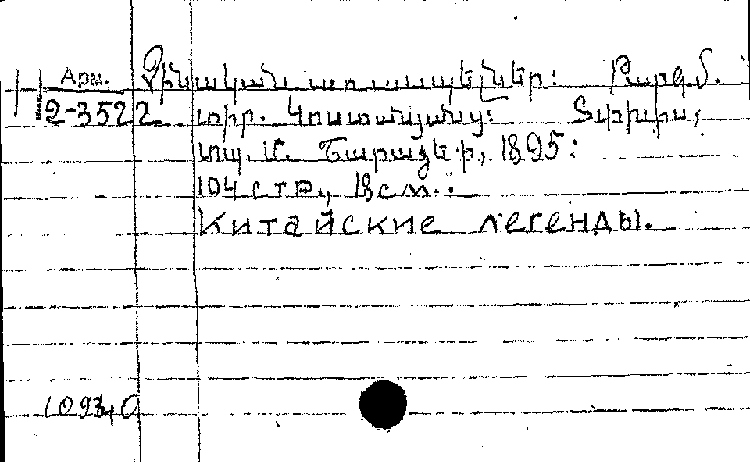 Арм. Չինական առասպելներ: Թարգմ.
2-3522 տիր. Կոստանյանց: Տփխիս,
տպ. Մ. Շարաձե, 1895:
104 стр., 18 см.:
Китайские легенды.